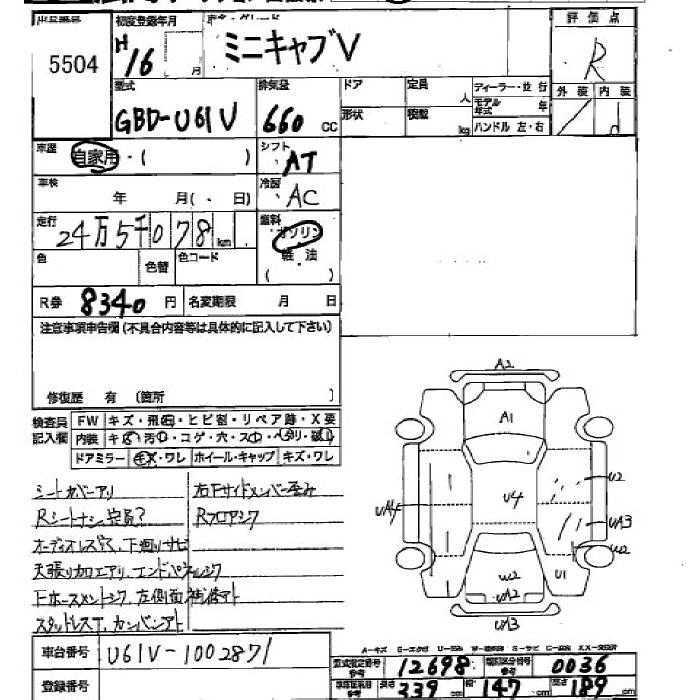 出品番号 5504
初度登録年月 H 16 月
ミニキャブV
評価点 R
型式 GBD-U61V
排気量 660 cc
ドア
定員 人
ディーラー・並行
モデル年式 年
形状
積載 kg
ハンドル 左・右
外装 内装
d
車歴 自家用・( )
シフト AT
車検 年 月(. 日)
冷房 AC
走行 24万5千078km
燃料 ガソリン
軽油
( )
色
色替
色コード
R券 8340円
名変期限 月 日
注意事項申告欄(不具合内容等は具体的に記入して下さい)
修復歴 有 (箇所 )
検査員記入欄
FW キズ・飛石・ヒビ割・リペア跡・X要
内装 キズ・汚れ・コゲ・穴・スレ・ヘタリ・破れ
ドアミラー キズ・ワレ ホイール・キャップ キズ・ワレ
シートカバーアリ
右Fサイドメンバー歪み
Rシートナシ定員?
Rフロアシワ
下廻りサビ
天張り加工アリ、エンドパネルシワ
左側面
スタッドレスT、カンバンアト
車台番号 U61V-1002871
登録番号
型式指定番号 参考 12698
類別区分番号 参考 0036
長さ 339 cm 幅 147 cm 高さ 189 cm
A2
A1
U2
U4
UA4
UA3
U2
W2
UA2
U1
UA3